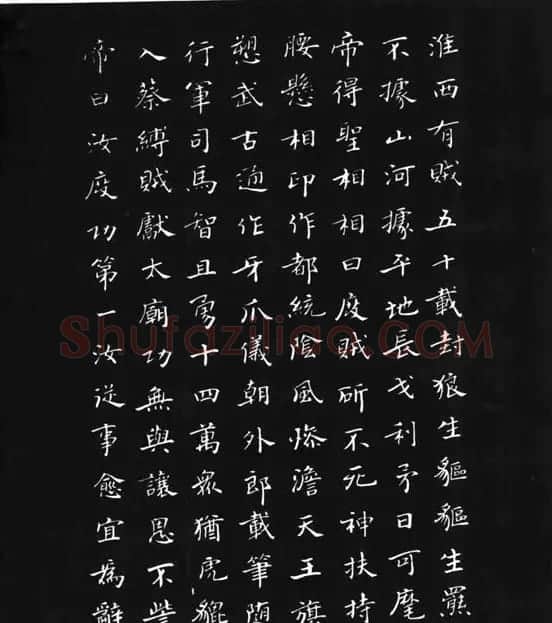 淮西有賊五十載封狼生貙貙生羆
不據山河據平地長戈利矛日可麾
帝得聖相相曰度賊斫不死神扶持
腰懸相印作都統陰風慘澹天王旗
愬武古通作牙爪儀朝外郎載筆隨
行軍司馬智且勇十四萬眾猶虎貔
入蔡縛賊獻太廟功無與讓恩不訾
帝曰汝度功第一汝從事愈宜為辭
Shufaziliao.COM